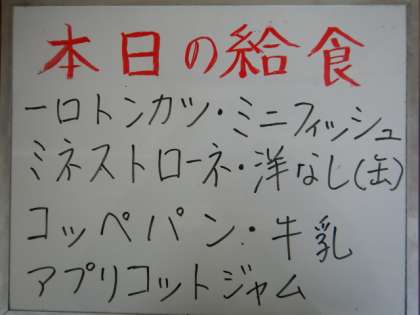 本日の給食
一口トンカツ・ミニフィッシュ
ミネストローネ・洋なし(缶)
コッペパン・牛乳
アプリコットジャム